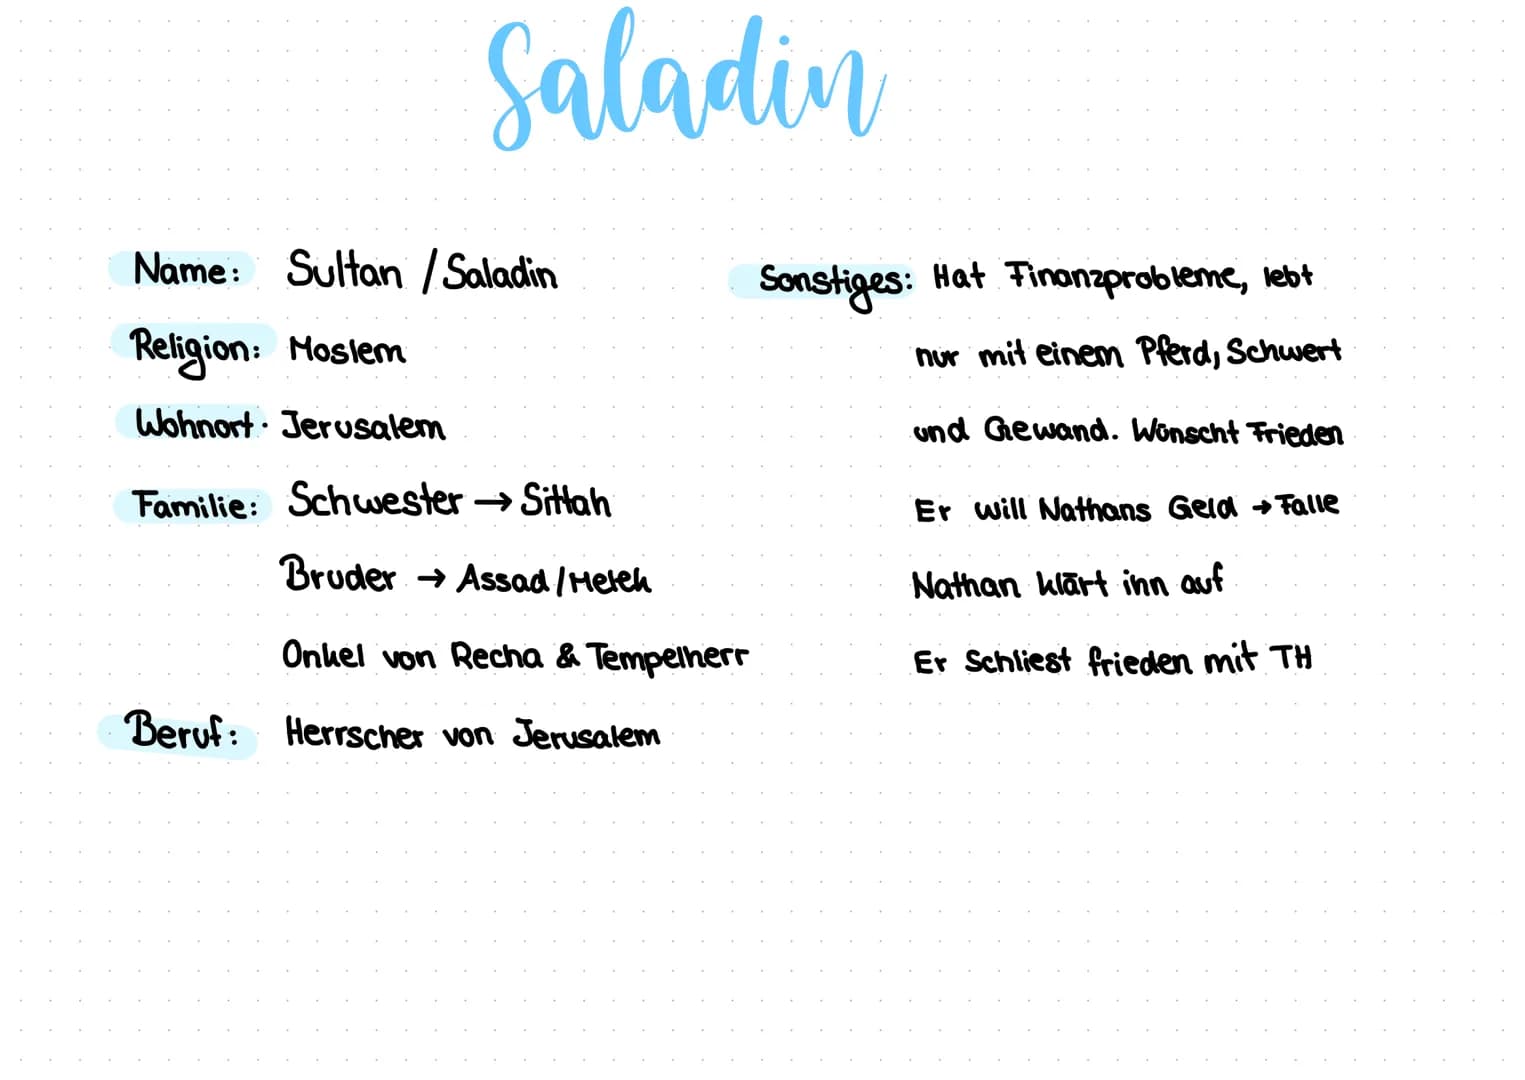 Saladin
Name: Sultan / Saladin
Religion: Moslem
Wohnort: Jerusalem
Familie: Schwester → Sittah
Bruder → Assad / Melek
Onkel von Recha & Tempelherr
Beruf: Herrscher von Jerusalem
Sonstiges: Hat Finanzprobleme, lebt
nur mit einem Pferd, Schwert
und Gewand. Wünscht Frieden
Er will Nathans Geld → Falle
Nathan klärt ihn auf
Er Schliest frieden mit TH